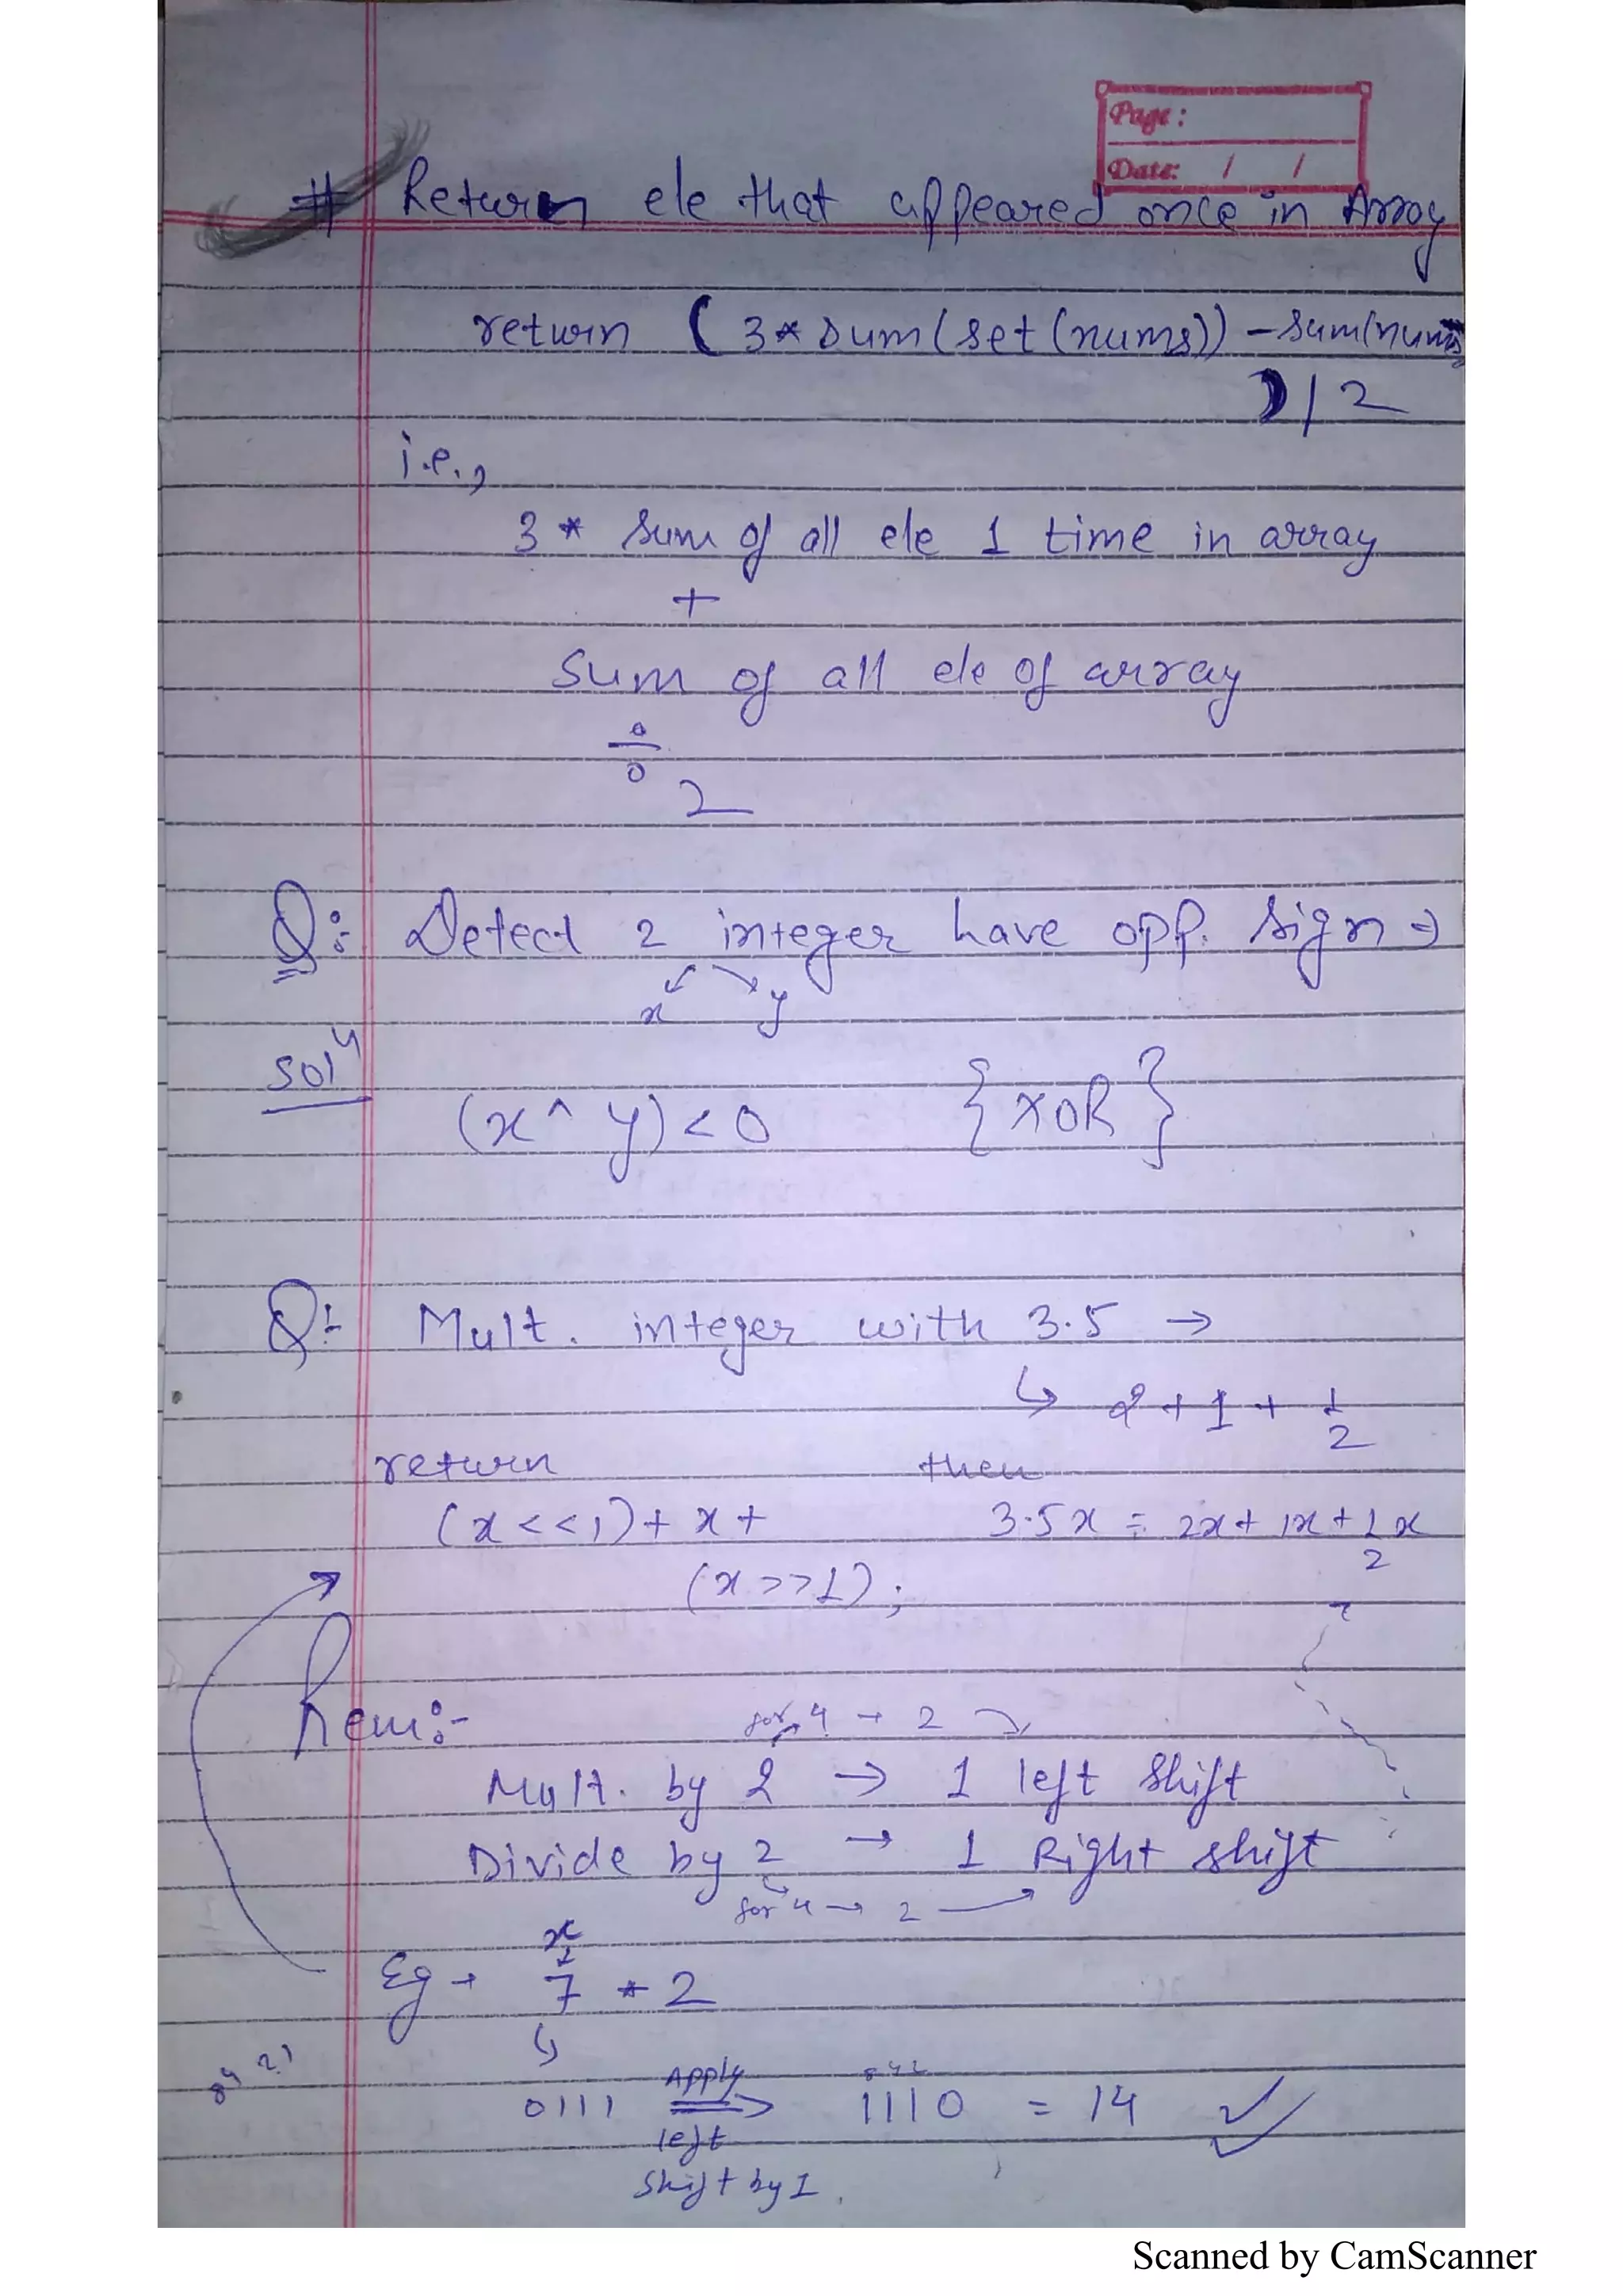 Page :
Date: / /
# Return ele that appeared once in Array
return (3 * sum(set(nums)) - sum(nums
) / 2
i.e.,
3 * sum of all ele 1 time in array
+
sum of all ele of array
÷
2
Q: Detect 2 integer have opp. sign →
x y
solⁿ
(x ^ y) < 0 {XOR}
Q:- Mult. integer with 3.5 →
↳ 2 + 1 + 1/2
return then
(x << 1) + x + 3.5x = 2x + 1x + 1/2 x
(x >> 1);
Rem:- for 4 → 2
Mult. by 2 → 1 left shift
Divide by 2 → 1 Right shift
for 4 → 2
x
Eg → 7 * 2
8421
Apply 842
0111 ⇒ 1110 = 14 ✓
left
shift by 1.
Scanned by CamScanner